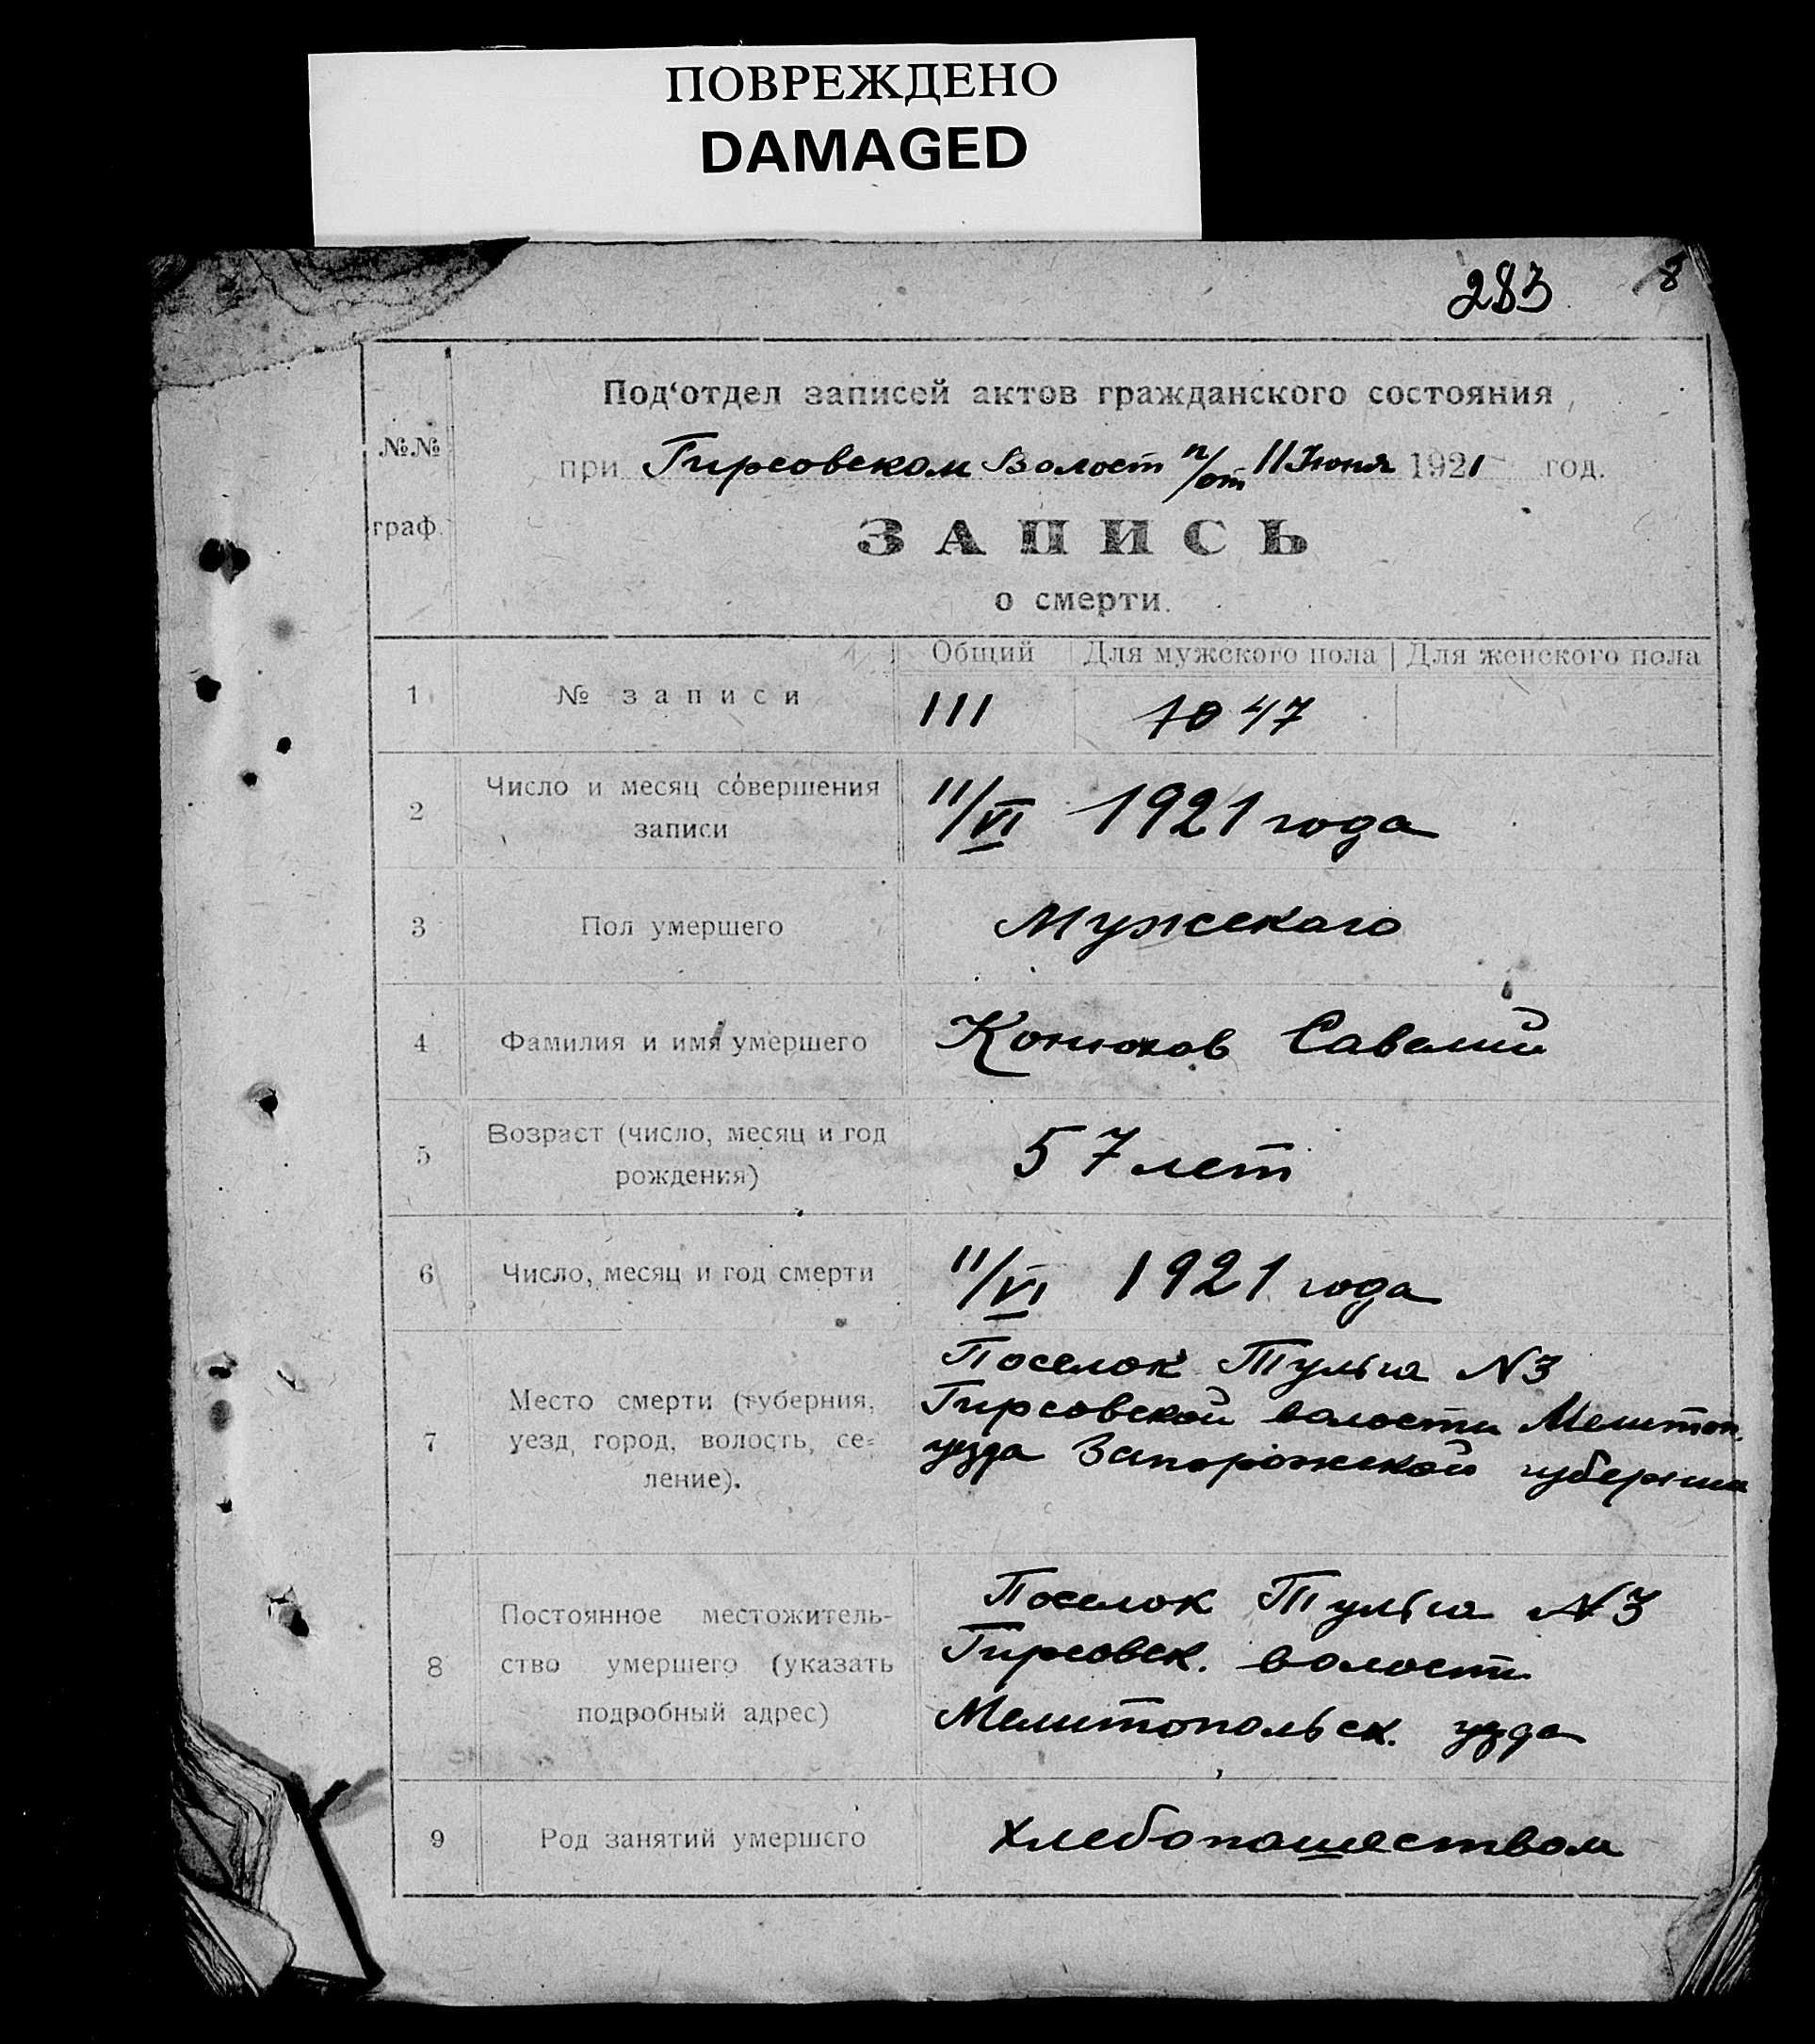 ПОВРЕЖДЕНО
DAMAGED
283
8
Под‘отдел записей актов гражданского состояния
№№
при Гирсовском Волост п/от 11 Июня 1921 год.
граф.
ЗАПИСЬ
о смерти.
Общий Для мужского пола Для женского пола
1 № записи 111 47
2 Число и месяц совершения
записи
11/VI 1921 года
3 Пол умершего Мужскаго
4 Фамилия и имя умершего Конюхов Савелий
5 Возраст (число, месяц и год
рождения)
57 лет
6 Число, месяц и год смерти 11/VI 1921 года
7 Место смерти (губерния,
уезд, город, волость, се-
ление).
Поселок №3
Гирсовской волости Мелитоп.
уезда Запорожской губернии
8 Постоянное местожитель-
ство умершего (указать
подробный адрес)
Поселок №3
Гирсовск. волости
Мелитопольск. уезда
9 Род занятий умершего хлебопашеством